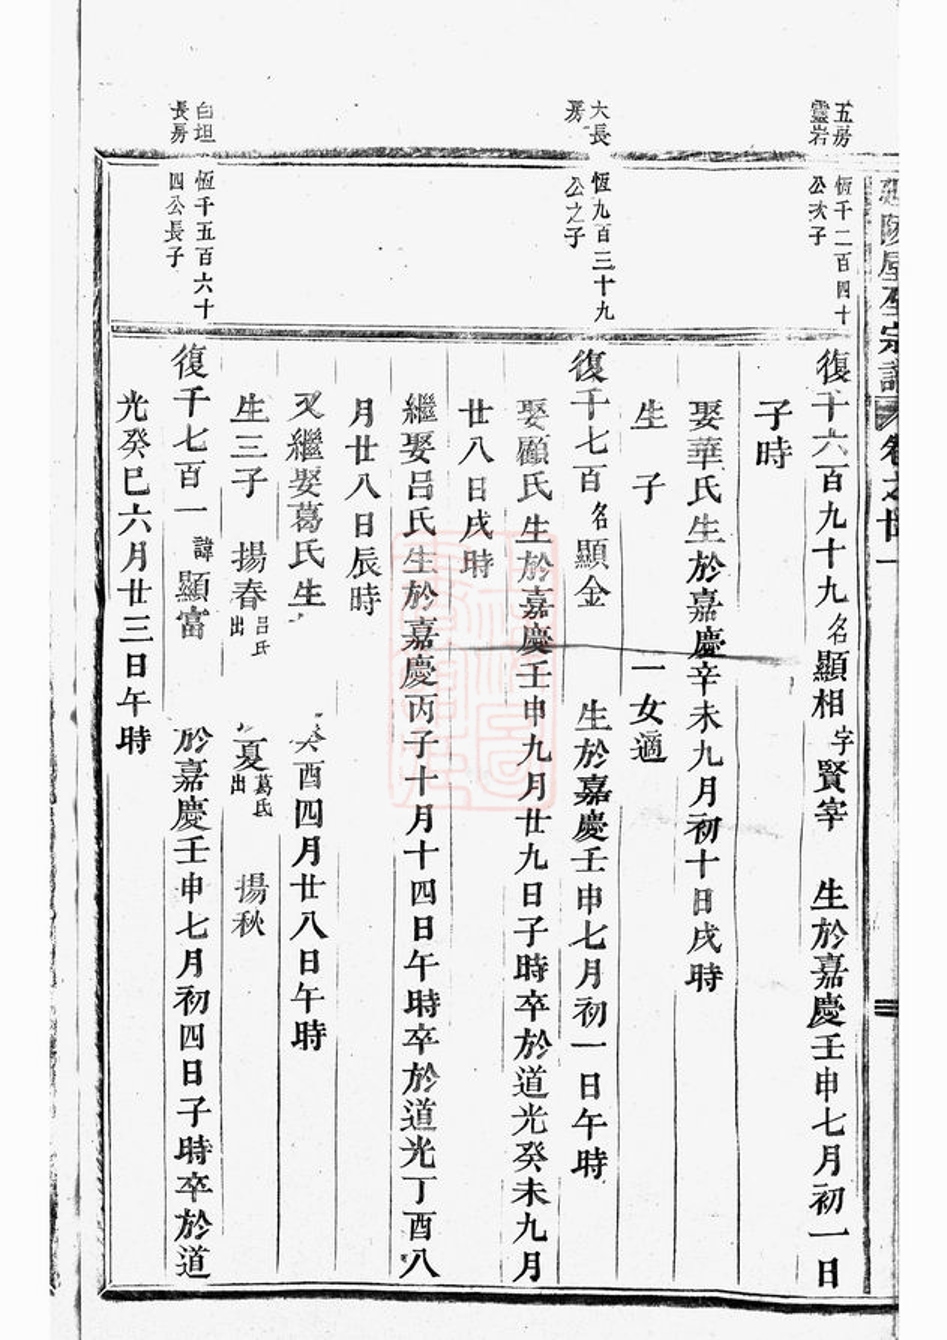 宗譜 卷之廿一
五房
靈岩
恆千二百四十
公次子
復千六百九十九名顯相字賢宰 生於嘉慶壬申七月初一日
子時
娶華氏生於嘉慶辛未九月初十日戌時
生 子 一女適
大長
房
恆九百三十九
公之子
復千七百名顯金 生於嘉慶壬申七月初一日午時
娶顧氏生於嘉慶壬申九月廿九日子時卒於道光癸未九月
廿八日戌時
繼娶呂氏生於嘉慶丙子十月十四日午時卒於道光丁酉八
月廿八日辰時
又繼娶葛氏生 癸酉四月廿八日午時
生三子 揚春呂氏出 夏葛氏出 揚秋
白坦
長房
恆千五百六十
四公長子
復千七百一諱顯富 於嘉慶壬申七月初四日子時卒於道
光癸巳六月廿三日午時